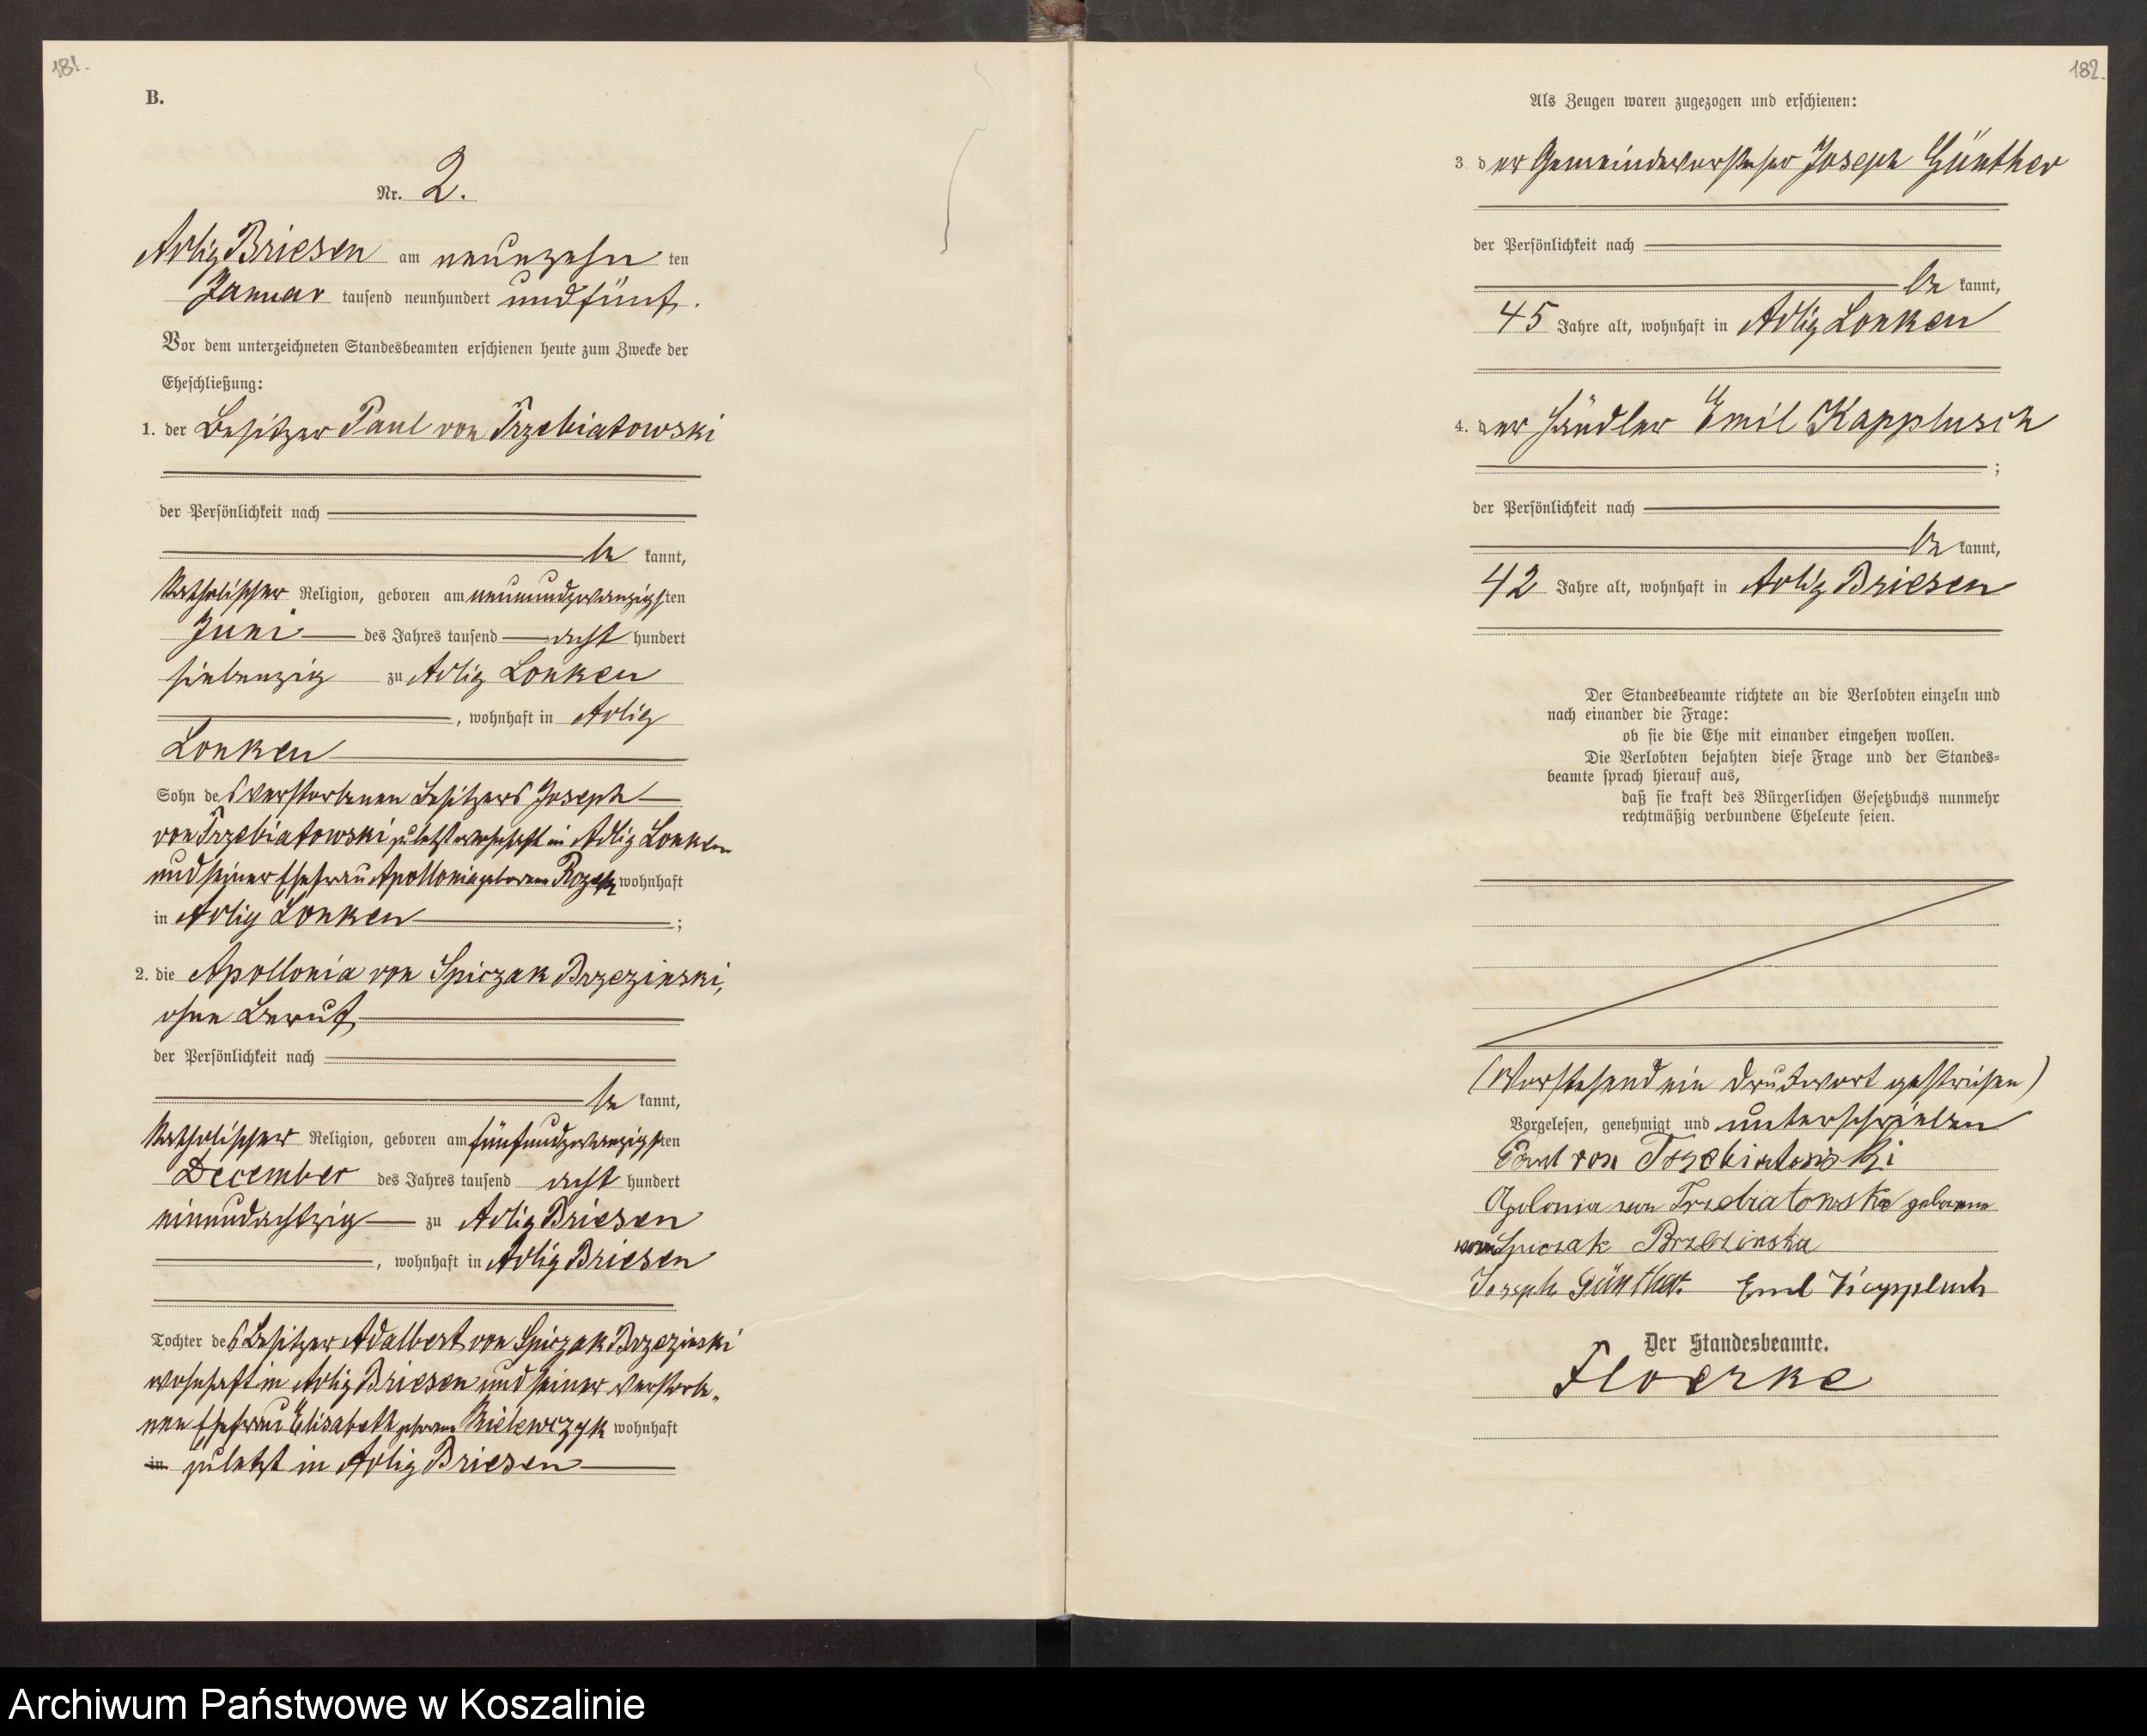 181.
B.
Nr. 2.
Adlig Briesen am neunzehn ten
Januar tausend neunhundert und fünf.
Vor dem unterzeichneten Standesbeamten erschienen heute zum Zwecke der
Eheschließung:
1. der Besitzer Paul von Trzebiatowski
der Persönlichkeit nach
be kannt,
katholischer Religion, geboren am neunundzwanzigsten
Juni des Jahres tausend acht hundert
siebenzig zu Adlig Lonken
, wohnhaft in Adlig
Lonken
Sohn des verstorbenen Besitzers Joseph
von Trzebiatowski zuletzt wohnhaft in Adlig Lonken
und seiner Ehefrau Apollonia geborene wohnhaft
in Adlig Lonken ;
2. die Apollonia von Spiczak Brzezinski,
ohne Beruf
der Persönlichkeit nach
be kannt,
katholischer Religion, geboren am fünfundzwanzigsten
December des Jahres tausend acht hundert
einundachtzig zu Adlig Briesen
, wohnhaft in Adlig Briesen
Tochter des Besitzer Adalbert von Spiczak Brzezinski
wohnhaft in Adlig Briesen und seiner verstorbe-
nen Ehefrau Elisabeth geborene wohnhaft
in zuletzt in Adlig Briesen
182.
Als Zeugen waren zugezogen und erschienen:
3. der Gemeindevorsteher Joseph Günther
der Persönlichkeit nach
be kannt,
45 Jahre alt, wohnhaft in Adlig Lonken
4. der Händler Emil Kapplusch
;
der Persönlichkeit nach
be kannt,
42 Jahre alt, wohnhaft in Adlig Briesen
Der Standesbeamte richtete an die Verlobten einzeln und
nach einander die Frage:
ob sie die Ehe mit einander eingehen wollen.
Die Verlobten bejahten diese Frage und der Standes-
beamte sprach hierauf aus,
daß sie kraft des Bürgerlichen Gesetzbuchs nunmehr
rechtmäßig verbundene Eheleute seien.
(Vorstehend ein Druckwort gestrichen)
Vorgelesen, genehmigt und unterschrieben
Paul von Trzebiatowski
Apolonia von Trzebiatowska geborene
von Spiczak Brzezinska
Joseph Günther. Emil Kapplusch
Der Standesbeamte.
Floerke
Archiwum Państwowe w Koszalinie